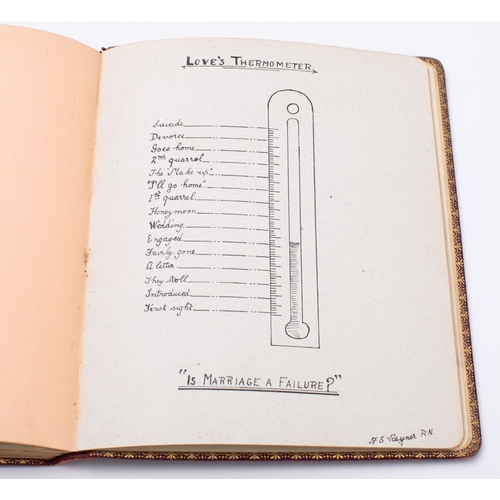 LOVE'S THERMOMETER
Suicide
Divorce
Goes home
2nd quarrel
The "Make up"
"I'll go home"
1st quarrel
Honeymoon
Wedding
Engaged
Fairly gone
A letter
They stroll
Introduced
First sight
"IS MARRIAGE A FAILURE?"
S Rayner R.N.